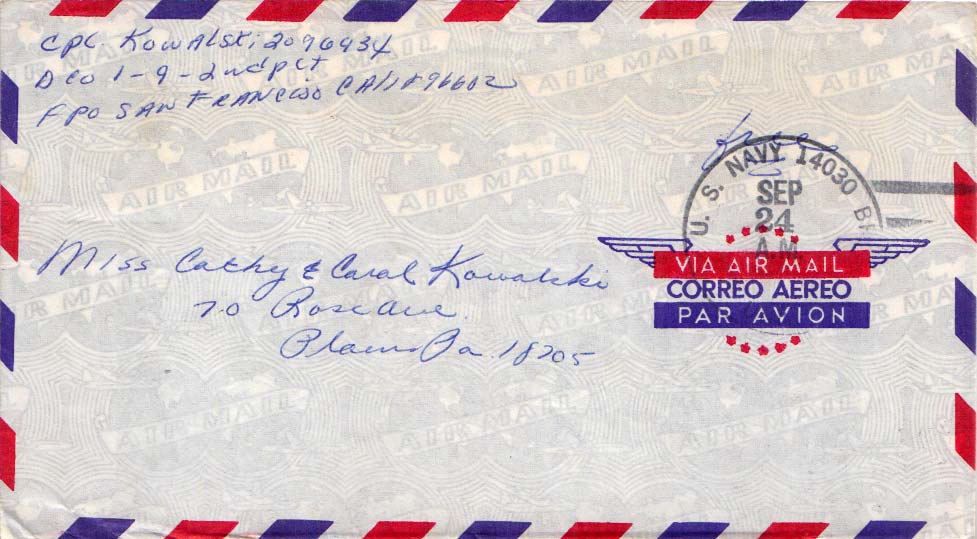 CPL. Kowalski 2096934
D co 1-9-2nd plt
FPO SAN FRANCISCO CALIF 96602
Free
U. S. NAVY 14030 BR
SEP
24
A.M.
VIA AIR MAIL
CORREO AEREO
PAR AVION
Miss Cathy & Carol Kowalski
70 Rose Ave.
Plains Pa. 18705
AIR MAIL